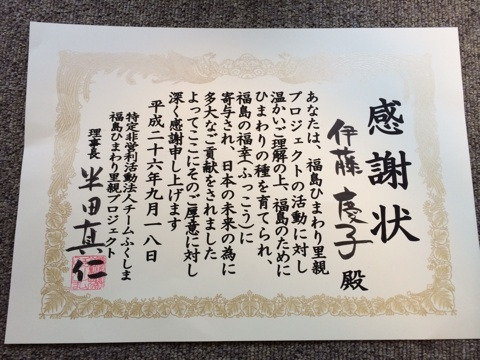 感謝状
伊藤慶子 殿
あなたは、福島ひまわり里親
プロジェクトの活動に対し
温かいご理解の上、福島のために
ひまわりの種を育てられ、
福島の福幸(ふっこう)に
寄与され、日本の未来の為に
多大なご貢献をされました
よってここにそのご厚意に対し
深く感謝申し上げます
平成二十六年九月一八日
特定非営利活動法人チームふくしま
福島ひまわり里親プロジェクト
理事長 半田真仁